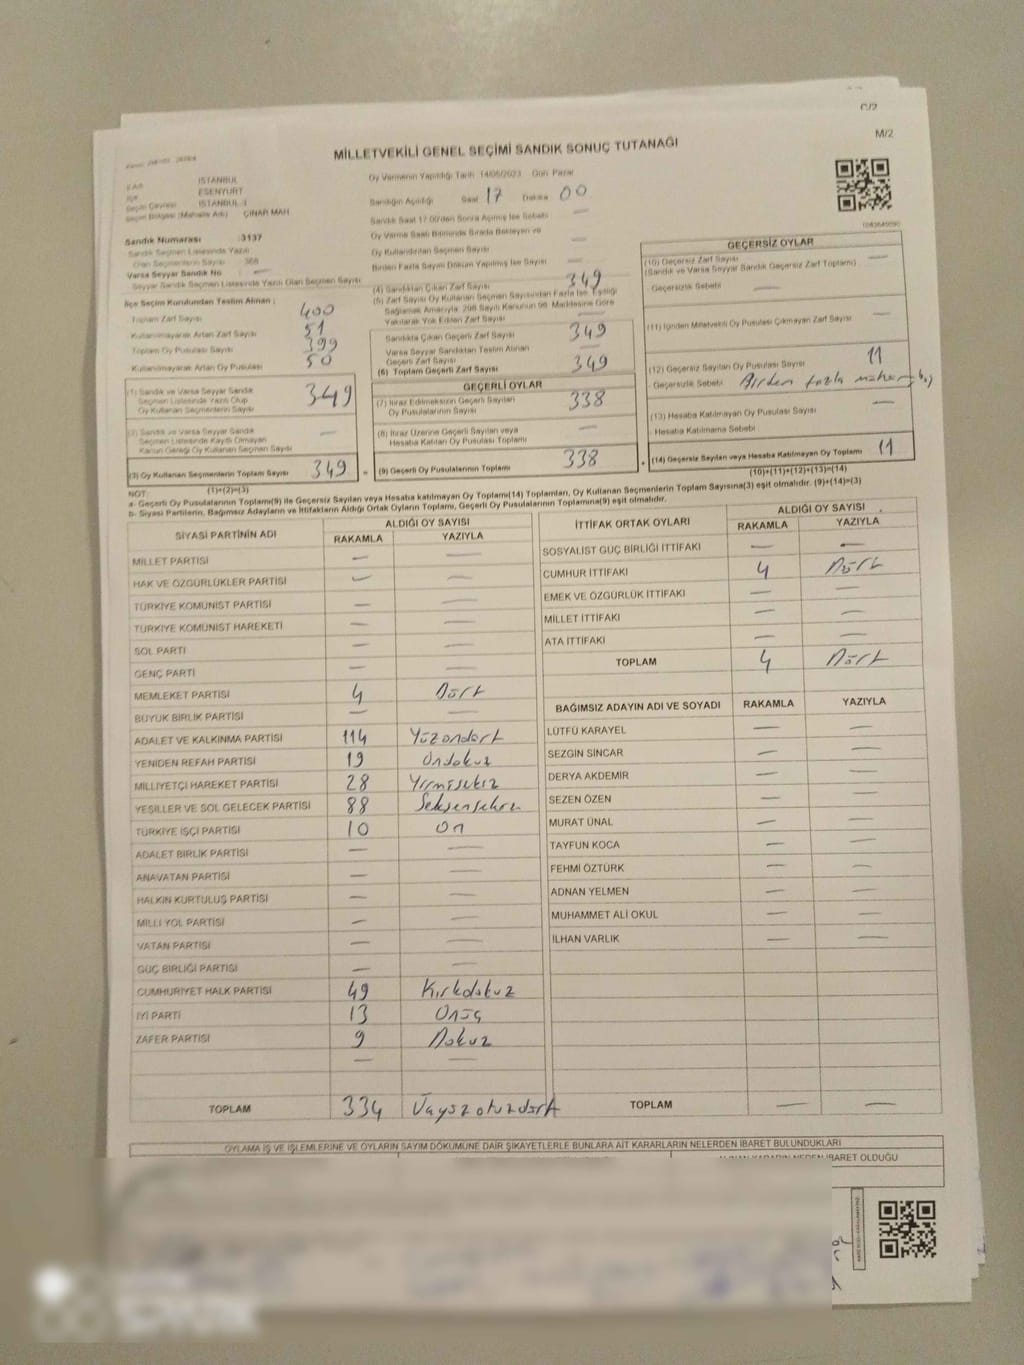 C/2
M/2
MİLLETVEKİLİ GENEL SEÇİMİ SANDIK SONUÇ TUTANAĞI
İSTANBUL
ESENYURT
Seçim Çevresi İSTANBUL-3
Seçim Bölgesi (Mahalle Adı) ÇINAR MAH.
Sandık Numarası :3137
Sandık Seçmen Listesinde Yazılı
Olan Seçmenlerin Sayısı : 368
Varsa Seyyar Sandık No —
Seyyar Sandık Seçmen Listesinde Yazılı Olan Seçmen Sayısı
İlçe Seçim Kurulundan Teslim Alınan ;
Toplam Zarf Sayısı 400
Kullanılmayarak Artan Zarf Sayısı 51
Toplam Oy Pusulası Sayısı 399
Kullanılmayarak Artan Oy Pusulası 50
(1) Sandık ve Varsa Seyyar Sandık
Seçmen Listesinde Yazılı Olup
Oy Kullanan Seçmenlerin Sayısı 349
(2) Sandık ve Varsa Seyyar Sandık
Seçmen Listesinde Kayıtlı Olmayan
Kanun Gereği Oy Kullanan Seçmenlerin Sayısı —
(3) Oy Kullanan Seçmenlerin Toplam Sayısı 349
(1)+(2)=(3)
Oy Vermenin Yapıldığı Tarih 14/05/2023 Gün Pazar
Sandığın Açıldığı Saat 17 Dakika 00
Sandık Saat 17.00'den Sonra Açılmış İse Sebebi —
Oy Verme Saati Bitiminde Sırada Bekleyen ve
Oy Kullandırılan Seçmen Sayısı —
Birden Fazla Sayım Döküm Yapılmış İse Sayısı —
(4) Sandıktan Çıkan Zarf Sayısı 349
(5) Zarf Sayısı Oy Kullanan Seçmen Sayısından Fazla İse, Eşitliği
Sağlamak Amacıyla, 298 Sayılı Kanunun 98. Maddesine Göre
Yakılarak Yok Edilen Zarf Sayısı —
Sandıkta Çıkan Geçerli Zarf Sayısı 349
Varsa Seyyar Sandıktan Teslim Alınan
Geçerli Zarf Sayısı —
(6) Toplam Geçerli Zarf Sayısı 349
GEÇERLİ OYLAR
(7) İtiraz Edilmeksizin Geçerli Sayılan
Oy Pusulalarının Sayısı 338
(8) İtiraz Üzerine Geçerli Sayılan veya
Hesaba Katılan Oy Pusulası Toplamı —
= (9) Geçerli Oy Pusulalarının Toplamı 338
GEÇERSİZ OYLAR
(10) Geçersiz Zarf Sayısı —
(Sandık ve Varsa Seyyar Sandık Geçersiz Zarf Toplamı)
Geçersizlik Sebebi —
(11) İçinden Milletvekili Oy Pusulası Çıkmayan Zarf Sayısı —
(12) Geçersiz Sayılan Oy Pusulası Sayısı 11
Geçersizlik Sebebi Birden fazla mühür
(13) Hesaba Katılmayan Oy Pusulası Sayısı —
Hesaba Katılmama Sebebi
+ (14) Geçersiz Sayılan veya Hesaba Katılmayan Oy Toplamı 11
(10)+(11)+(12)+(13)=(14)
NOT:
a- Geçerli Oy Pusulalarının Toplamı(9) ile Geçersiz Sayılan veya Hesaba katılmayan Oy Toplamı(14) Toplamları, Oy Kullanan Seçmenlerin Toplam Sayısına(3) eşit olmalıdır. (9)+(14)=(3)
b- Siyasi Partilerin, Bağımsız Adayların ve İttifakların Aldığı Ortak Oyların Toplamı, Geçerli Oy Pusulalarının Toplamına(9) eşit olmalıdır.
SİYASİ PARTİNİN ADI ALDIĞI OY SAYISI
RAKAMLA YAZIYLA
MİLLET PARTİSİ — —
HAK VE ÖZGÜRLÜKLER PARTİSİ — —
TÜRKİYE KOMÜNİST PARTİSİ — —
TÜRKİYE KOMÜNİST HAREKETİ — —
SOL PARTİ — —
GENÇ PARTİ — —
MEMLEKET PARTİSİ 4 Dört
BÜYÜK BİRLİK PARTİSİ — —
ADALET VE KALKINMA PARTİSİ 114 Yüzondört
YENİDEN REFAH PARTİSİ 19 Ondokuz
MİLLİYETÇİ HAREKET PARTİSİ 28 Yirmisekiz
YEŞİLLER VE SOL GELECEK PARTİSİ 88 Seksensekiz
TÜRKİYE İŞÇİ PARTİSİ 10 On
ADALET BİRLİK PARTİSİ — —
ANAVATAN PARTİSİ — —
HALKIN KURTULUŞ PARTİSİ — —
MİLLİ YOL PARTİSİ — —
VATAN PARTİSİ — —
GÜÇ BİRLİĞİ PARTİSİ — —
CUMHURİYET HALK PARTİSİ 49 Kırkdokuz
İYİ PARTİ 13 Onüç
ZAFER PARTİSİ 9 Dokuz
— —
TOPLAM 334 Üçyüzotuzdört
İTTİFAK ORTAK OYLARI ALDIĞI OY SAYISI
RAKAMLA YAZIYLA
SOSYALİST GÜÇ BİRLİĞİ İTTİFAKI — —
CUMHUR İTTİFAKI 4 Dört
EMEK VE ÖZGÜRLÜK İTTİFAKI — —
MİLLET İTTİFAKI — —
ATA İTTİFAKI — —
TOPLAM 4 Dört
BAĞIMSIZ ADAYIN ADI VE SOYADI RAKAMLA YAZIYLA
LÜTFÜ KARAYEL — —
SEZGİN SİNCAR — —
DERYA AKDEMİR — —
SEZEN ÖZEN — —
MURAT ÜNAL — —
TAYFUN KOCA — —
FEHMİ ÖZTÜRK — —
ADNAN YELMEN — —
MUHAMMET ALİ OKUL — —
İLHAN VARLIK — —
TOPLAM — —
OYLAMA İŞ VE İŞLEMLERİNE VE OYLARIN SAYIM DÖKÜMÜNE DAİR ŞİKAYETLERLE BUNLARA AİT KARARLARIN NELERDEN İBARET BULUNDUKLARI
ALINAN KARARIN NEDEN İBARET OLDUĞU